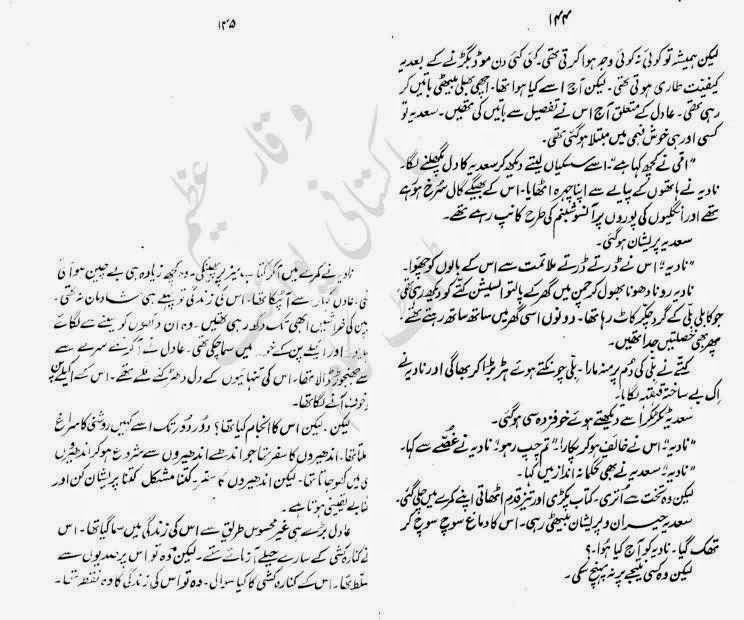 ۱۴۴
لیکن ہمیشہ تو کوئی نہ کوئی وجہ ہوا کرتی تھی۔ کئی کئی دن موڈ بگڑنے کے بعد یہ
کیفیت طاری ہوتی تھی۔ لیکن آج اسے کیا ہوا تھا۔ اچھی بھلی بیٹھی باتیں کر
رہی تھی۔ عادل کے متعلق آج اس نے تفصیل سے باتیں کی تھیں۔ سعدیہ تو
کسی اور ہی خوش فہمی میں مبتلا ہو گئی تھی۔
"امی نے کچھ کہا ہے"۔ اسے سسکیاں لیتے دیکھ کر سعدیہ کا دل پگھلنے لگا۔
نادیہ نے ہاتھوں کے پیالے سے اپنا چہرہ اٹھایا۔ اس کے بھیگے گال سرخ ہو رہے
تھے اور انگلیوں کی پوروں پر آنسو شبنم کی طرح کانپ رہے تھے۔
سعدیہ پریشان ہو گئی۔
"نادیہ"۔ اس نے ڈرتے ڈرتے ملائمت سے اس کے بالوں کو چھوا۔
نادیہ رونا دھونا بھول کر صحن میں گھر کے پالتو السیشن کتے کو دیکھ رہی تھی
جو کابلی بلی کے گرد چکر کاٹ رہا تھا۔ دونوں اسی گھر میں ساتھ ساتھ رہتے تھے۔
پھر بھی خصلتیں جدا تھیں۔
کتے نے بلی کی دم پر منہ مارا۔ بلی چونکتے ہوئے ہڑبڑا کر بھاگی اور نادیہ نے
اک بے ساختہ قہقہہ لگایا۔
سعدیہ ٹکر ٹکر اسے دیکھتے ہوئے خوفزدہ سی ہو گئی۔
"نادیہ"۔ اس نے خائف ہو کر پکارا۔ "تم چپ رہو"۔ نادیہ نے غصے سے کہا۔
"نادیہ"۔ سعدیہ نے بھی تحکمانہ انداز میں کہا۔
لیکن وہ تخت سے اتری۔ کتاب پکڑی اور تیز قدم اٹھاتی اپنے کمرے میں چلی گئی۔
سعدیہ حیران و پریشان بیٹھی رہی۔ اس کا دماغ سوچ سوچ کر
تھک گیا۔ نادیہ کو آج کیا ہوا۔؟
لیکن وہ کسی نتیجے پر نہ پہنچ سکی۔
۱۴۵
نادیہ نے کمرے میں آ کر کتاب میز پر پھینکی۔ وہ کچھ زیادہ ہی بے چین ہو رہی
تھی۔ عادل کہاں سے آ ٹپکا تھا۔ اس کی زندگی تو پہلے ہی شادمان نہ تھی۔
بچپن کی خراشیں ابھی تک دکھ رہی تھیں۔ وہ ان دکھوں کو سینے سے لگائے
اور اکیلے پن کے میں سما چکی تھی۔ عادل نے آ کر نئے سرے سے
جھنجھوڑ ڈالا تھا۔ اس کی تنہائیوں کے دل دھڑکنے لگے تھے۔ اس کے اکیلے پن
کو خوف آنے لگا تھا۔
لیکن۔ لیکن اس کا انجام کیا تھا؟ دور دور تک اسے کہیں روشنی کا سراغ
نہ ملتا تھا۔ اندھیروں کا سفر تھا جو اندھے اندھیروں سے شروع ہو کر اندھیروں
ہی میں کھو جاتا تھا۔ لیکن اندھیروں کا سفر کتنا مشکل کتنا پریشان کن اور
کتنا بے یقینی ہوتا ہے۔
عادل بڑے ہی غیر محسوس طریق سے اس کی زندگی میں سما گیا تھا۔ اس
نے کنارہ کشی کے سارے حیلے آزمائے تھے۔ لیکن وہ تو اس پر صدیوں سے
مسلط تھا۔ اس کے کنارہ کشی کا کیا سوال۔ وہ تو اس کی زندگی کا وہ نقطہ تھا۔
وقار عظیم
پاکستانی پوائنٹ